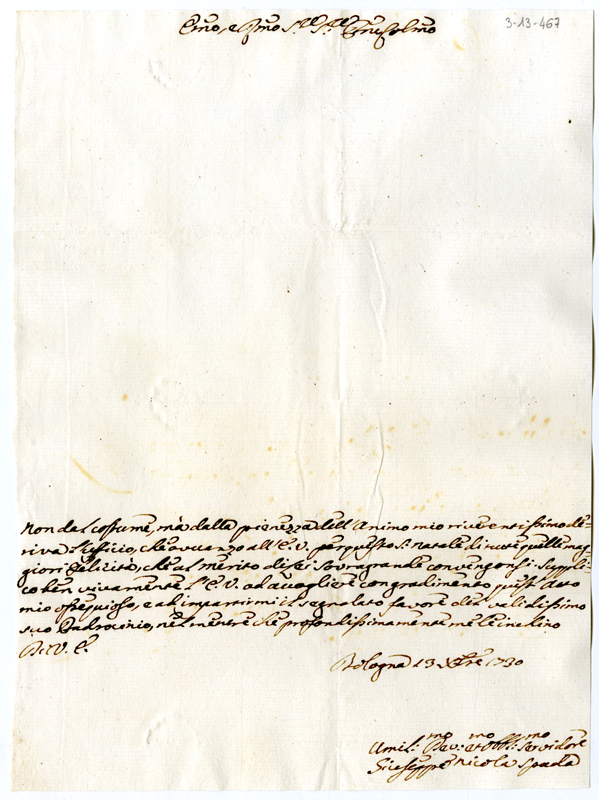 3-13-467
Emo, e Rmo Sig.re Sig.re Pne Colmo
Non dal costume, mà dalla pienezza dell'Animo mio riverentissimo de-
riva l'ufficio, che avvanzo all'E.V. per questo S. Natale di tutte quelle mag-
giori felicità, che al merito di sei sovragrande convengonsi. Suppli-
co ben vivamente l'E.V. ad accogliere con gradimento quest'atto
mio ossequioso, e ad impartirmi il segnalato favore del validissimo
suo Padrocinio, nel mentre che profondissimamente me le inchino
Di V. E.
Bologna 13 Xbre 1730
Umil:mo Dev:mo et Obbl:mo Servidore
Giuseppe Nicola Spada